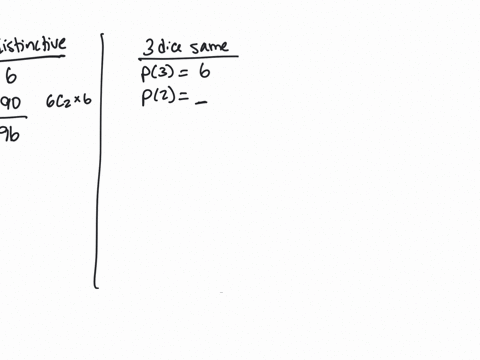 istinctive
6
90 6C2×6
96
3 dice same
P(3) = 6
P(2) = _